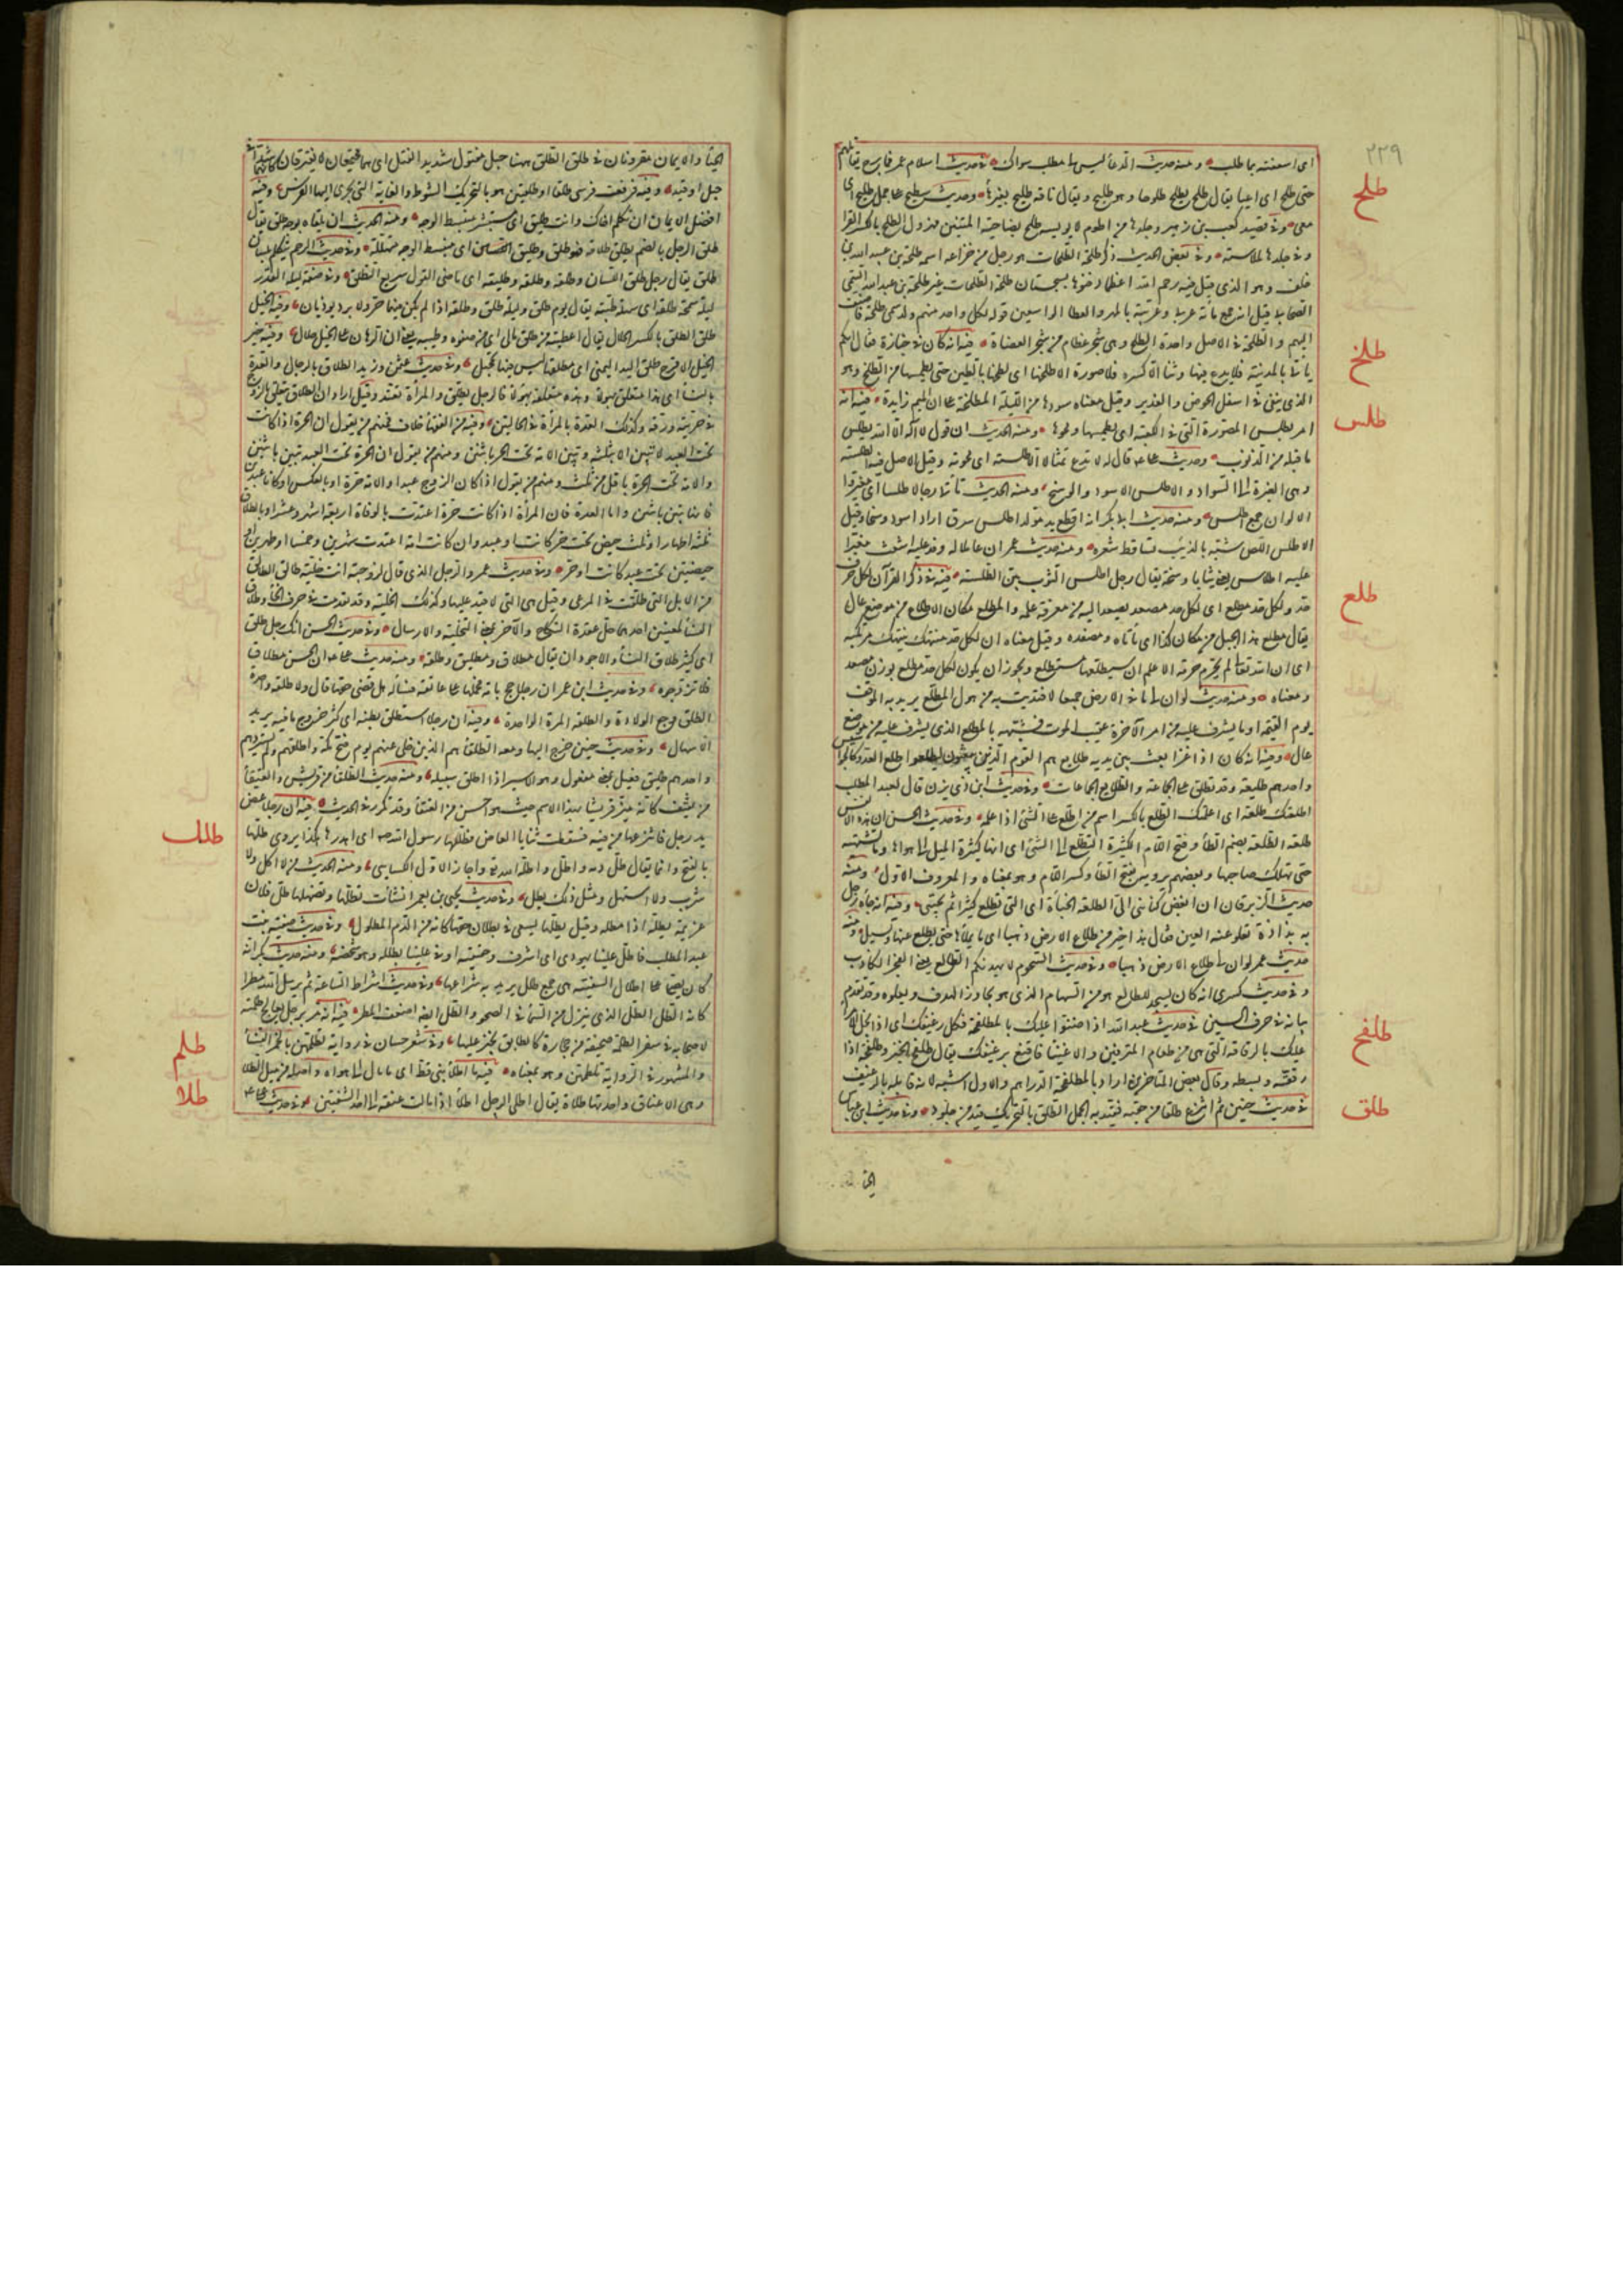 ٢٣٩
اى اسعفته بما طلب ومنه حديث الدعاء ليس لى مطلب سواك فى حديث اسلام عمر فما برح يقاتلهم
طلح
حتى طلح اى اعيا يقال طلح يطلح طلوحا وهو طليح ويقال ناقة طليح بغير هاء وحديث سطيح على جمل طليح اى
معى وفى قصيد كعب بن زهير وجلدها من اطوم لا يؤيسه طلح بضاحية المتنين مهزول الطلح بالكسر القراد
وفى بعض الحديث ذكر طلحة الطلحات هو رجل من خزاعة اسمه طلحة بن عبيد الله بن
خلف وهو الذى قيل فيه رحم الله اعظما دفنوها بسجستان طلحة الطلحات غير طلحة بن عبيد الله التيمى
الصحابى قيل انه جمع مائة عربى وعربية بالمهر والعطاء الواسعين فولد لكل واحد منهم ولد سمى طلحة فاضيف
اليهم والطلحة فى الاصل واحدة الطلح وهى شجر عظام من شجر العضاه فيه انه كان فى جنازة فقال ايكم
طلخ
ياتى المدينة فلا يدع فيها وثنا الا كسره ولا صورة الا طلخها اى لطخها بالطين حتى يطمسها من الطلخ وهو
الذى يبقى فى اسفل الحوض والغدير وقيل معناه سودها من الليلة المطلخمة على ان الميم زايدة فيه انه
طلس
امر بطلس الصورة التى فى الكعبة اى بطمسها ومحوها ومنه الحديث ان قول لا اله الا الله يطلس
ما قبله من الذنوب وحديث على قال له لا تدع تمثالا الا طلسته اى محوته وقيل الاصل فيه الطلسة
وهى الغبرة الى السواد والاطلس الاسود والوسخ ومنه الحديث تاتى رجالا طلسا اى مغبرة
الالوان جمع اطلس ومنه حديث ابى بكر انه قطع يد مولد اطلس سرق اراد اسود وسخا وقيل
الاطلس اللص شبه بالذئب تساقط شعره ومنه حديث عمر ان عاملا له وفد عليه اشعث مغبرا
عليه اطلاس يعنى ثيابا وسخة يقال رجل اطلس الثوب بين الطلسة فيه فى ذكر القرآن لكل حرف
طلع
حد ولكل حد مطلع اى لكل حد مصعد يصعد اليه من معرفة علمه والمطلع مكان الاطلاع من موضع عال
يقال مطلع هذا الجبل من مكان كذا اى مأتاه ومصعده وقيل معناه ان لكل حد منتهك ينتهكه مرتكبه
اى ان الله تعالى لم يحرم حرمة الا علم ان سيطلعها مستطلع ويجوز ان يكون لكل حد مطلع بوزن مصعد
ومعناه ومنه حديث لو ان لى ما فى الارض جميعا لافتديت به من هول المطلع يريد به الموقف
يوم القيمة او ما يشرف عليه من امر الآخرة عقيب الموت فشبه بالمطلع الذى يشرف عليه من موضع
عال وفيه انه كان اذا غزا بعث بين يديه طلايع هم القوم الذين يبعثون ليطلعوا طلع العدو كالجواسيس
واحدهم طليعة وقد تطلق على الجماعة والطلايع الجماعات وفى حديث ابن ذى يزن قال لعبد المطلب
اطلعتك طلعه اى اعلمتك الطلع بالكسر اسم من اطلع على الشئ اذا علمه وفى حديث الحسن ان هذه الانفس
طلعة الطلعة بضم الطاء وفتح اللام الكثيرة التطلع الى الشئ اى انها كثيرة الميل الى هواها وما تشتهيه
حتى تهلك صاحبها وبعضهم يرويه بفتح الطاء وكسر اللام وهو بمعناه والمعروف الاول ومنه
حديث الزبرقان ان ابغض كنائنى الى الطلعة الخبأة اى التى تطلع كثيرا ثم تختبى وفيه انه جاءه رجل
به بذاذة تعلو عنه العين فقال هذا خير من طلاع الارض ذهبا اى ما يملأها حتى يطلع عنها ويسيل ومنه
حديث عمر لو ان لى طلاع الارض ذهبا وفى حديث السحور لا يهيدنكم الطالع يعنى الفجر الكاذب
وفى حديث كسرى انه كان يسجد للطالع هو من السهام الذى يجاوز الهدف ويعلوه وقد تقدم
بيانه فى حرف السين فى حديث عبد الله اذا ضنوا عليك بالمطلفحة فكل رغيفك اى اذا بخل الامراء
طلفح
عليك بالرقاقة التى هى من طعام المترفين والاغنياء فاقنع برغيفك يقال طلفح الخبز وفلطحه اذا
رققه وبسطه وقال بعض المتاخرين اراد بالمطلفحة الدراهم والاول اشبه لانه قابله بالرغيف
طلق
فى حديث حنين ثم انتزع طلقا من حقبه فقيد به الجمل الطلق بالتحريك قيد من جلود وفى حديث ابن عباس
الحيا
الحياء والايمان مقرونان فى طلق الطلق ههنا حبل مفتول شديد الفتل اى هما مجتمعان لا يفترقان كانهما شدا فى
حبل او قيد وفيه فرفعت فرسى طلقا او طلقين هو بالتحريك الشوط والغاية التى يجرى اليها الفرس وفيه
افضل الايمان ان تكلم اخاك وانت طليق اى مستبشر منبسط الوجه ومنه الحديث ان يلقاه بوجه طلق يقال
طلق الرجل بالضم يطلق طلاقة فهو طلق وطليق اى منبسط الوجه متهلله وفى حديث الرحم تتكلم بلسان
طلق يقال رجل طلق اللسان وطلقه وطلقه وطليقه اى ماضى القول سريع النطق وفى صفة ليلة القدر
ليلة سمحة طلقة اى سهلة طيبة يقال يوم طلق وليلة طلق وطلقة اذا لم يكن فيها حر ولا برد يوذيان وفيه الخيل
طلق الطلق بالكسر الحلال يقال اعطيته من طلق مالى اى من صفوه وطيبه يعنى ان الرهان على الخيل حلال وفيه خير
الخيل الاقرح طلق اليد اليمنى اى مطلقها ليس فيها تحجيل وفى حديث عثمن وزيد الطلاق بالرجال والعدة
بالنساء اى هذا متعلق بهؤلاء وهذه متعلقة بهؤلاء فالرجل يطلق والمرأة تعتد وقيل اراد ان الطلاق يتعلق بالزوج
فى حريته ورقه وكذلك العدة بالمرأة فى الحالين وفيه من الفقهاء خلاف فمنهم من يقول ان الحرة اذا كانت
تحت العبد لا تبين الا بثلثة وتبين الامة تحت الحر باثنتين ومنهم من يقول ان الحرة تحت العبد تبين باثنتين
والامة تحت الحرة باقل من ثلث ومنهم من يقول اذا كان الزوج عبدا والامة حرة او بالعكس او كانا عبدين
فانها تبين باثنتين واما العدة فان المرأة اذا كانت حرة اعتدت بالوفاة اربعة اشهر وعشرا وبالطلاق
ثلثة اطهار او ثلث حيض تحت حر كانت او عبد وان كانت امة اعتدت شهرين وخمسا او طهرين او
حيضتين تحت عبد كانت او حر وفى حديث عمر والرجل الذى قال لزوجته انت خلية طالق الطالق
من الابل التى طلقت فى المرعى وقيل هى التى لا قيد عليها وكذلك الخلية وقد تقدمت فى حرف الخاء وطلاق
النساء لمعنيين احدهما حل عقدة النكاح والآخر بمعنى التخلية والارسال وفى حديث الحسن انك رجل طلق
اى كثير طلاق النساء والاجود ان يقال مطلاق ومطليق وطلقة ومنه حديث على ان الحسن مطلاق
فلا تزوجوه وفى حديث ابن عمر ان رجلا حج بامه فحملها على عاتقه فسأله هل قضى حقها قال ولا طلقة واحدة
الطلق وجع الولادة والطلقة المرة الواحدة وفيه ان رجلا استطلق بطنه اى كثر خروج ما فيه يريد
الاسهال وفى حديث حنين خرج اليها ومعه الطلقاء هم الذين خلى عنهم يوم فتح مكة واطلقهم ولم يسترقهم
واحدهم طليق فعيل بمعنى مفعول وهو الاسير اذا اطلق سبيله ومنه حديث الطلقاء من قريش والعتقاء
من ثقيف كانه ميز قريشا بهذا الاسم حيث هو احسن من العتقاء وقد تكرر فى الحديث فيه ان رجلا عض
طلل
يد رجل فانتزعها من فيه فسقطت ثنايا العاض فطلها رسول الله اى اهدرها هكذا يروى طلها
بالفتح وانما يقال طل دمه واطل واطله الله واجاز الاول الكسايى ومنه الحديث من لا اكل ولا
شرب ولا استهل ومثل ذلك يطل وفى حديث يحيى بن يعمر انشأت تطلها وتضهلها طل فلان
غريمه يطله اذا مطله وقيل يطلها يسعى فى بطلان حقها كانه من الدم المطلول وفى حديث صفية بنت
عبد المطلب فاطل علينا يهودى اى اشرف وحقيقته اوفى علينا بطلله وهو شخصه ومنه حديث بكر انه
كان يصلى على اطلال السفينة هى جمع طلل يريد به شراعها وفى حديث اشراط الساعة ثم يرسل الله مطرا
كانه الطل الطل الذى ينزل من السماء فى الصحو والطل ايضا اضعف المطر فيه انه مر برجل يعالج طلمة
طلم
لاصحابه فى سفر الطلمة صحيفة من حجارة كالطابق يخبز عليها وفى شعر حسان فى رواية تطلمهن بالخمر النساء
والمشهور فى الرواية تلطمهن وهو بمعناه فيه ما اطلى نبى قط اى ما مال الى هواه واصله من ميل الطلا
طلا
وهى الاعناق واحدتها طلاة يقال اطلى الرجل اطلاء اذا مالت عنقه الى احد الشقين وفى حديث على